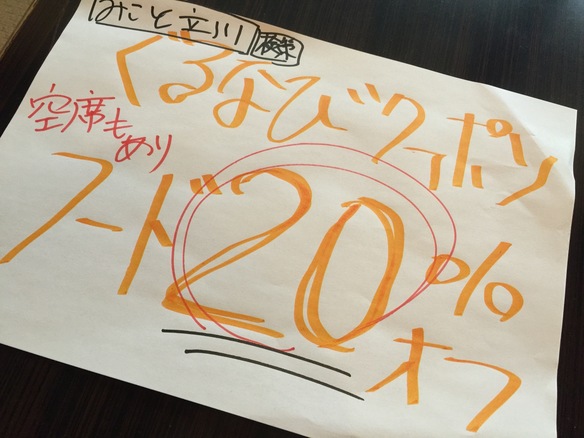 みこと 立川 検索
ぐるなびクーポン
空席も
あり
フード20%
オフ